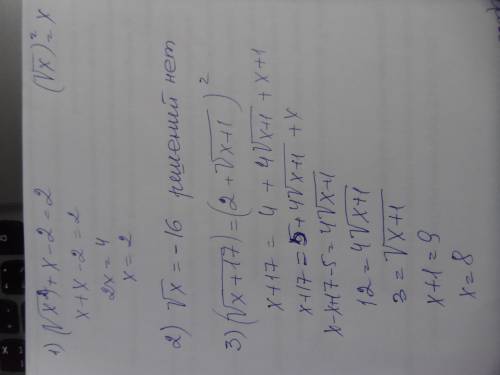 1) (√x²) + x - 2 = 2     (√x)² = x
x + x - 2 = 2
2x = 4
x = 2
2) √x = -16 решений нет
3) (√x+17) = (2 + √x+1)²
x + 17 = 4 + 4√x+1 + x + 1
x + 17 = 5 + 4√x+1 + x
x - x + 17 - 5 = 4√x+1
12 = 4√x+1
3 = √x+1
x + 1 = 9
x = 8